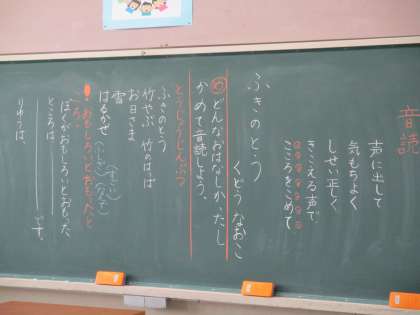 音読
声に出して
気もちよく
しせい正しく
きこえる声で
こころをこめて
ふきのとう
くどう なおこ
め どんなおはなしか、たし
かめて音読しよう。
とうじょうじんぶつ
ふきのとう
竹やぶ 竹のはっぱ
お日さま
雪
はるかぜ
！おもしろいとおもったと
ころ
ぼくがおもしろいとおもった
ところは
です。
りゆうは、